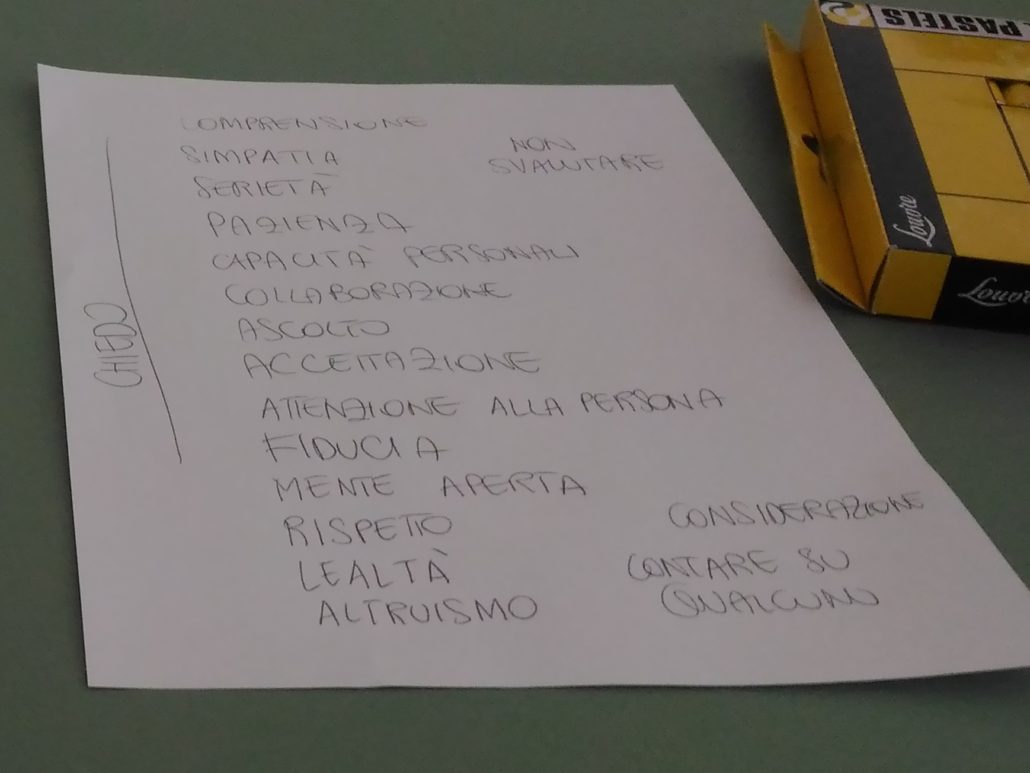 CHIEDO
COMPRENSIONE
SIMPATIA
SERIETÀ
PAZIENZA
CAPACITÀ PERSONALI
COLLABORAZIONE
ASCOLTO
ACCETTAZIONE
ATTENZIONE ALLA PERSONA
FIDUCIA
MENTE APERTA
RISPETTO
LEALTÀ
ALTRUISMO
NON
SVALUTARE
CONSIDERAZIONE
CONTARE SU
QUALCUNO
PASTELS
Louvre
Louvre